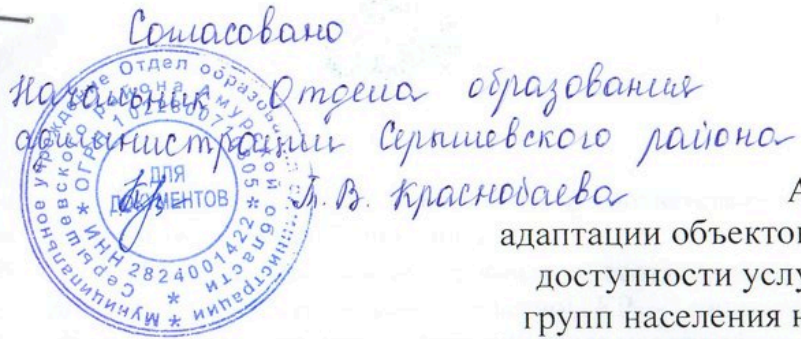 Согласовано
Начальник Отдела образования
администрации Серышевского района
Л.В. Краснобаева
А
адаптации объектов
доступности услу
групп населения н
Муниципальное учреждение Отдел образования администрации
Серышевского района Амурской области
* ОГРН 102280071 * ИНН 2824001422 *
ДЛЯ
ДОКУМЕНТОВ